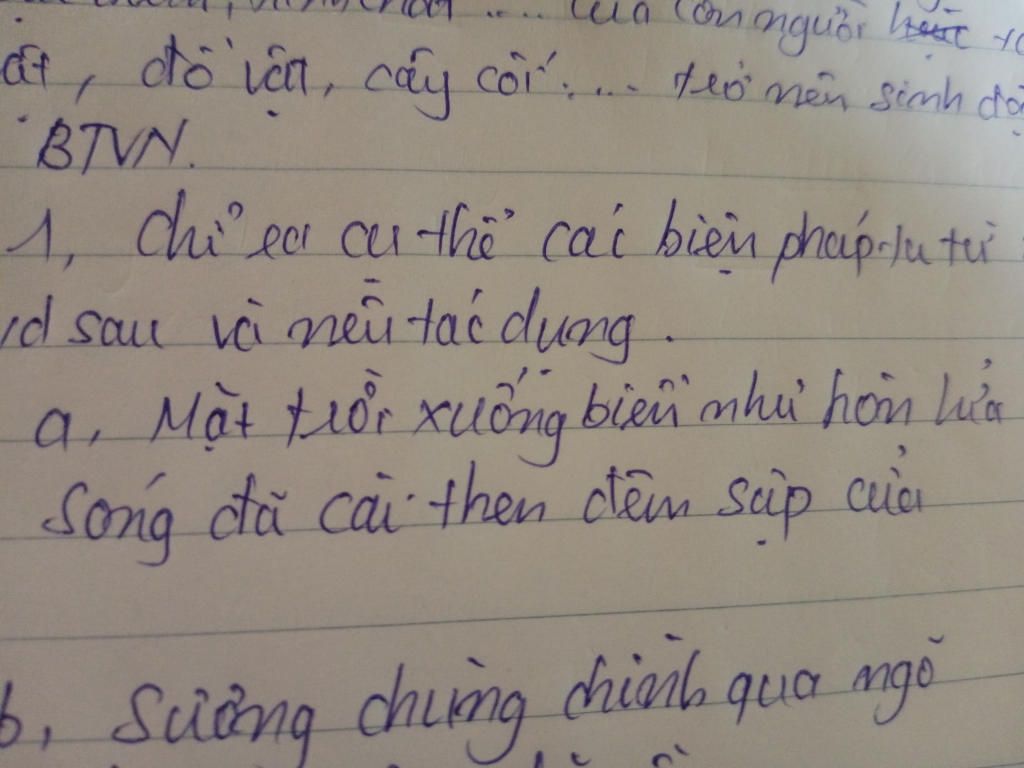 .... của con người
ật, đồ vật, cây cối.... trở nên sinh độ
BTVN.
1, Chỉ ra cụ thể các biện pháp tu từ
vd sau và nêu tác dụng.
a, Mặt trời xuống biển như hòn lửa
Sóng đã cài then đêm sập cửa
b, Sương chùng chình qua ngõ